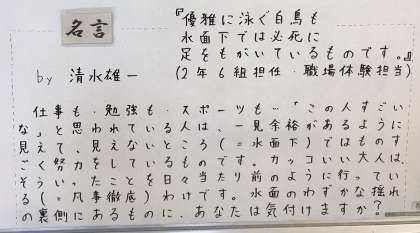 名言
『優雅に泳ぐ白鳥も
水面下では必死に
足をもがいているものです。』
by 清水雄一
(2年6組担任・職場体験担当)
仕事も・勉強も・スポーツも…「この人すごい
な」と思われている人は、一見余裕があるように
見えて、見えないところ(=水面下)ではものす
ごく努力をしているものです。カッコいい大人は、
そういったことを日々当たり前のように行ってい
る(=凡事徹底)わけです。水面のわずかな揺れ
の裏側にあるものに、あなたは気付けますか?